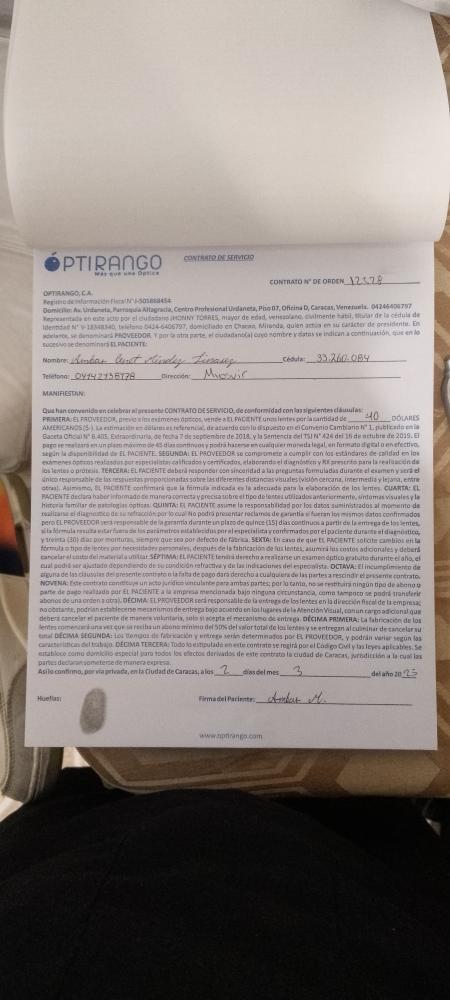 ÓPTIRANGO
Más que una Óptica
CONTRATO DE SERVICIO
CONTRATO N° DE ORDEN 12578
OPTIRANGO, C.A.
Registro de Información Fiscal N° J-505868454
Domicilio: Av. Urdaneta, Parroquia Altagracia, Centro Profesional Urdaneta, Piso 07, Oficina D, Caracas, Venezuela. 04246406797
Representada en este acto por el ciudadano JHONNY TORRES, mayor de edad, venezolano, civilmente hábil, titular de la cédula de
Identidad N° V-18348340, teléfono 0424-6406797, domiciliado en Chacao, Miranda, quien actúa en su carácter de presidente. En
adelante, se denominará PROVEEDOR. Y por la otra parte, el ciudadano(a) cuyo nombre y datos se indican a continuación, que en lo
sucesivo se denominará EL PACIENTE:
Nombre: Cédula: 33.260.084
Teléfono: 04142738778 Dirección:
MANIFIESTAN:
Que han convenido en celebrar el presente CONTRATO DE SERVICIO, de conformidad con las siguientes cláusulas:
PRIMERA: EL PROVEEDOR, previo a los exámenes ópticos, vende a EL PACIENTE unos lentes por la cantidad de 40 DÓLARES
AMERICANOS ($-). La estimación en dólares es referencial, de acuerdo con lo dispuesto en el Convenio Cambiario N° 1, publicado en la
Gaceta Oficial N° 6.405, Extraordinaria, de fecha 7 de septiembre de 2018, y la Sentencia del TSJ N° 424 del 16 de octubre de 2019. El
pago se realizará en un plazo máximo de 45 días continuos y podrá hacerse en cualquier moneda legal, en formato digital o en efectivo,
según la disponibilidad de EL PACIENTE. SEGUNDA: EL PROVEEDOR se compromete a cumplir con los estándares de calidad en los
exámenes ópticos realizados por especialistas calificados y certificados, elaborando el diagnóstico y RX prescrito para la realización de
los lentes o prótesis. TERCERA: EL PACIENTE deberá responder con sinceridad a las preguntas formuladas durante el examen y será el
único responsable de las respuestas proporcionadas sobre las diferentes distancias visuales (visión cercana, intermedia y lejana, entre
otras). Asimismo, EL PACIENTE confirmará que la fórmula indicada es la adecuada para la elaboración de los lentes. CUARTA: EL
PACIENTE declara haber informado de manera correcta y precisa sobre el tipo de lentes utilizados anteriormente, síntomas visuales y la
historia familiar de patologías ópticas. QUINTA: EL PACIENTE asume la responsabilidad por los datos suministrados al momento de
realizarse el diagnóstico de su refracción por lo cual No podrá presentar reclamos de garantía si fueran los mismos datos confirmados
pero EL PROVEEDOR será responsable de la garantía durante un plazo de quince (15) días continuos a partir de la entrega de los lentes,
si la fórmula resulta estar fuera de los parámetros establecidos por el especialista y confirmados por el paciente durante el diagnóstico,
y treinta (30) días por monturas, siempre que sea por defecto de fábrica. SEXTA: En caso de que EL PACIENTE solicite cambios en la
fórmula o tipo de lentes por necesidades personales, después de la fabricación de los lentes, asumirá los costos adicionales y deberá
cancelar el costo del material a utilizar. SÉPTIMA: EL PACIENTE tendrá derecho a realizarse un examen óptico gratuito durante el año, el
cual podrá ser ajustado dependiendo de su condición refractiva y de las indicaciones del especialista. OCTAVA: El incumplimiento de
alguna de las cláusulas del presente contrato o la falta de pago dará derecho a cualquiera de las partes a rescindir el presente contrato.
NOVENA: Este contrato constituye un acto jurídico vinculante para ambas partes; por lo tanto, no se restituirá ningún tipo de abono o
parte de pago realizado por EL PACIENTE a la empresa mencionada bajo ninguna circunstancia, como tampoco se podrá transferir
abonos de una orden a otra). DÉCIMA: EL PROVEEDOR será responsable de la entrega de los lentes en la dirección fiscal de la empresa;
no obstante, podrían establecerse mecanismos de entrega bajo acuerdo en los lugares de la Atención Visual, con un cargo adicional que
deberá cancelar el paciente de manera voluntaria, solo si acepta el mecanismo de entrega. DÉCIMA PRIMERA: La fabricación de los
lentes comenzará una vez que se reciba un abono mínimo del 50% del valor total de los lentes y se entregan al culminar de cancelar su
total DÉCIMA SEGUNDA: Los tiempos de fabricación y entrega serán determinados por EL PROVEEDOR, y podrán variar según las
características del trabajo. DÉCIMA TERCERA: Todo lo estipulado en este contrato se regirá por el Código Civil y las leyes aplicables. Se
establece como domicilio especial para todos los efectos derivados de este contrato la ciudad de Caracas, jurisdicción a la cual las
partes declaran someterse de manera expresa.
Así lo confirmo, por vía privada, en la Ciudad de Caracas, a los 2 días del mes 3 del año 2025
Huellas: Firma del Paciente: Ambar M.
www.optirango.com